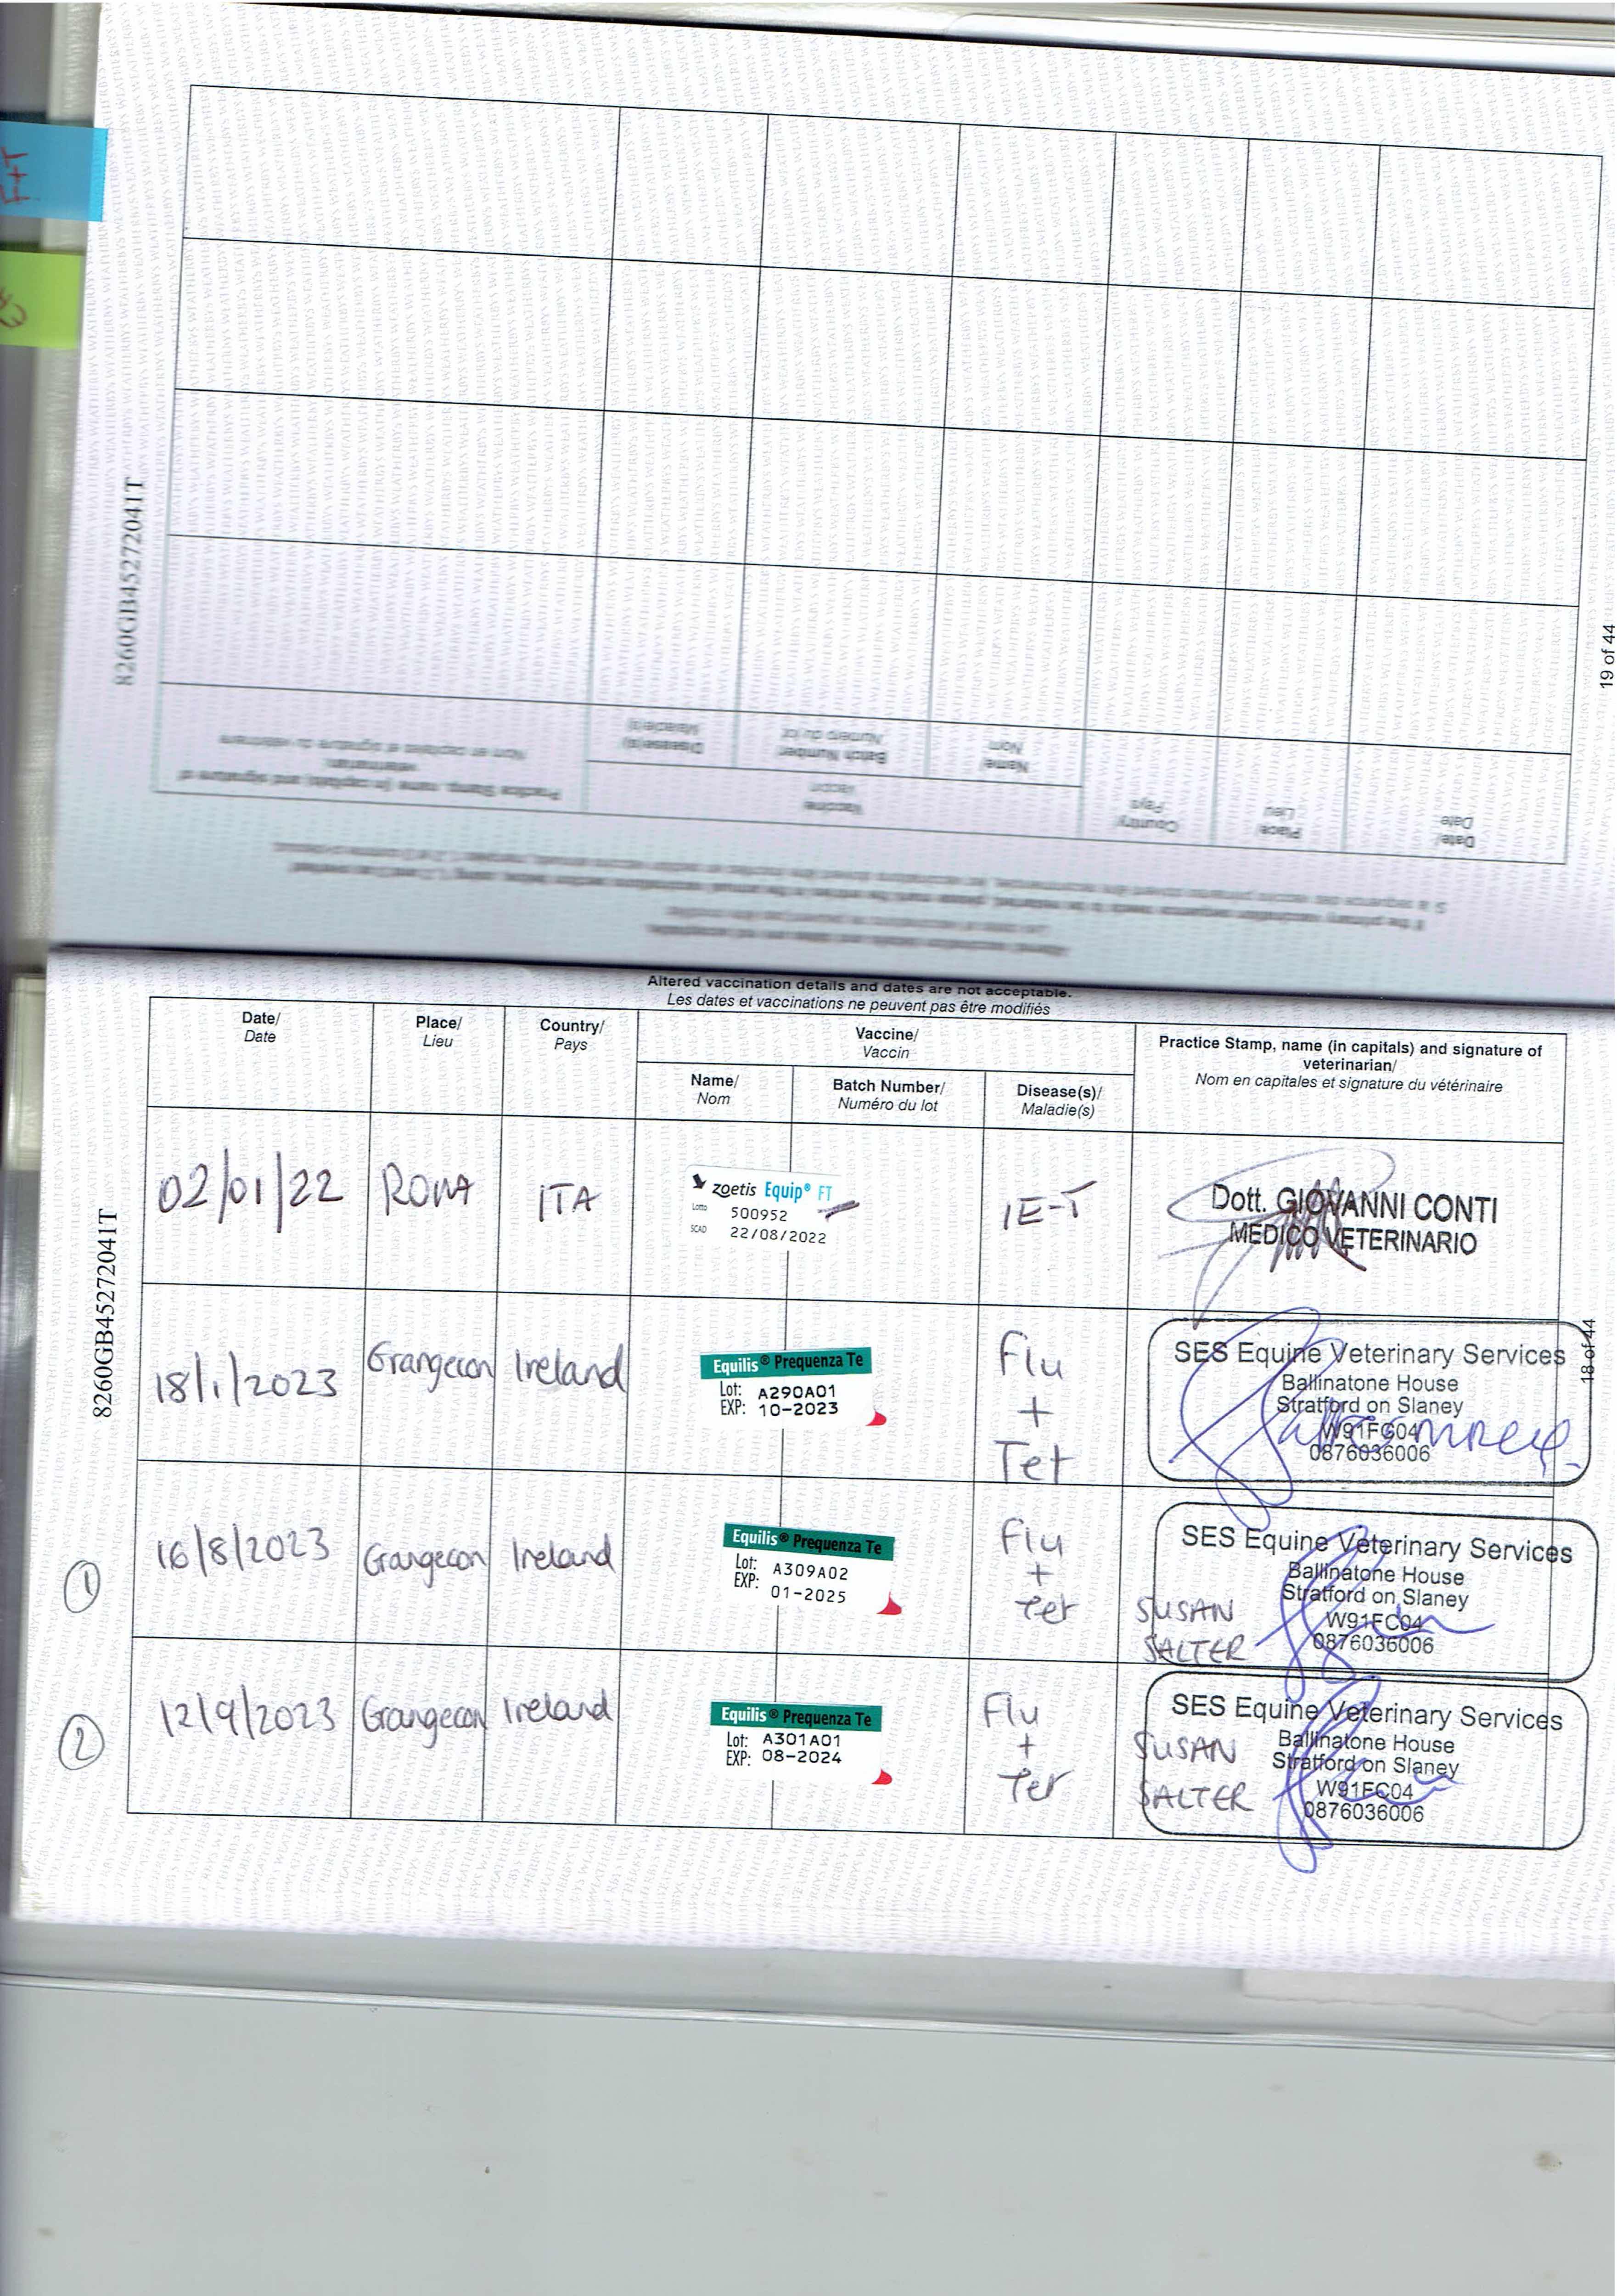 F+T
8260GB45272041T
19 of 44
Altered vaccination details and dates are not acceptable.
Les dates et vaccinations ne peuvent pas être modifiés
If the primary vaccination sequence needs to be restarted, please mark the entries in the annual vaccination section below, using 1, 2 and 3 as
Date/
Date
Place/
Lieu
Country/
Pays
Vaccine/
Vaccin
Name/
Nom
Batch Number/
Numéro du lot
Disease(s)/
Maladie(s)
Practice Stamp, name (in capitals) and signature of
veterinarian/
Nom en capitales et signature du vétérinaire
Altered vaccination details and dates are not acceptable.
Les dates et vaccinations ne peuvent pas être modifiés
Date/
Date
Place/
Lieu
Country/
Pays
Vaccine/
Vaccin
Name/
Nom
Batch Number/
Numéro du lot
Disease(s)/
Maladie(s)
Practice Stamp, name (in capitals) and signature of
veterinarian/
Nom en capitales et signature du vétérinaire
8260GB45272041T
18 of 44
02/01/22
ROMA
ITA
zoetis Equip® FT
Lotto 500952
SCAD 22/08/2022
IE-T
Dott. GIOVANNI CONTI
MEDICO VETERINARIO
18/1/2023
Grangecon
Ireland
Equilis® Prequenza Te
Lot: A290A01
EXP: 10-2023
Flu
+
Tet
SES Equine Veterinary Services
Ballinatone House
Stratford on Slaney
W91FC04
0876036006
1
16/8/2023
Grangecon
Ireland
Equilis® Prequenza Te
Lot: A309A02
EXP: 01-2025
Flu
+
Tet
SUSAN
SALTER
SES Equine Veterinary Services
Ballinatone House
Stratford on Slaney
W91FC04
0876036006
2
12/9/2023
Grangecon
Ireland
Equilis® Prequenza Te
Lot: A301A01
EXP: 08-2024
Flu
+
Tet
SUSAN
SALTER
SES Equine Veterinary Services
Ballinatone House
Stratford on Slaney
W91FC04
0876036006